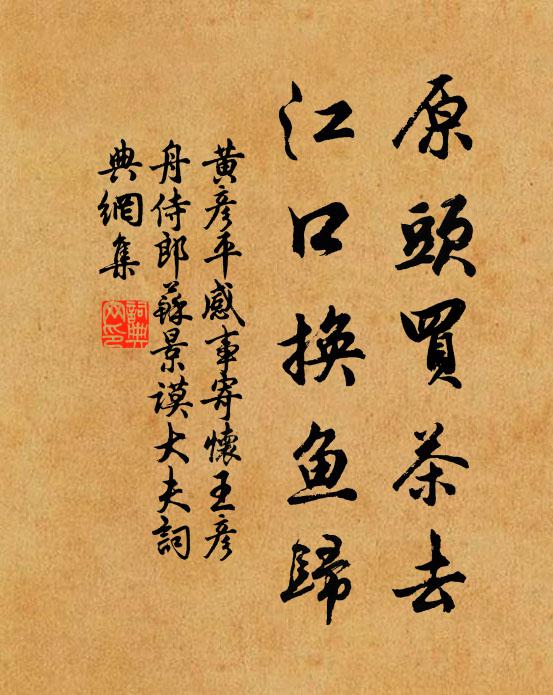 原頭買茶去
江口換魚歸
黃彥平感事寄懷王彥
舟侍郎蘇景謨大夫詞
典網集
詞典
网印